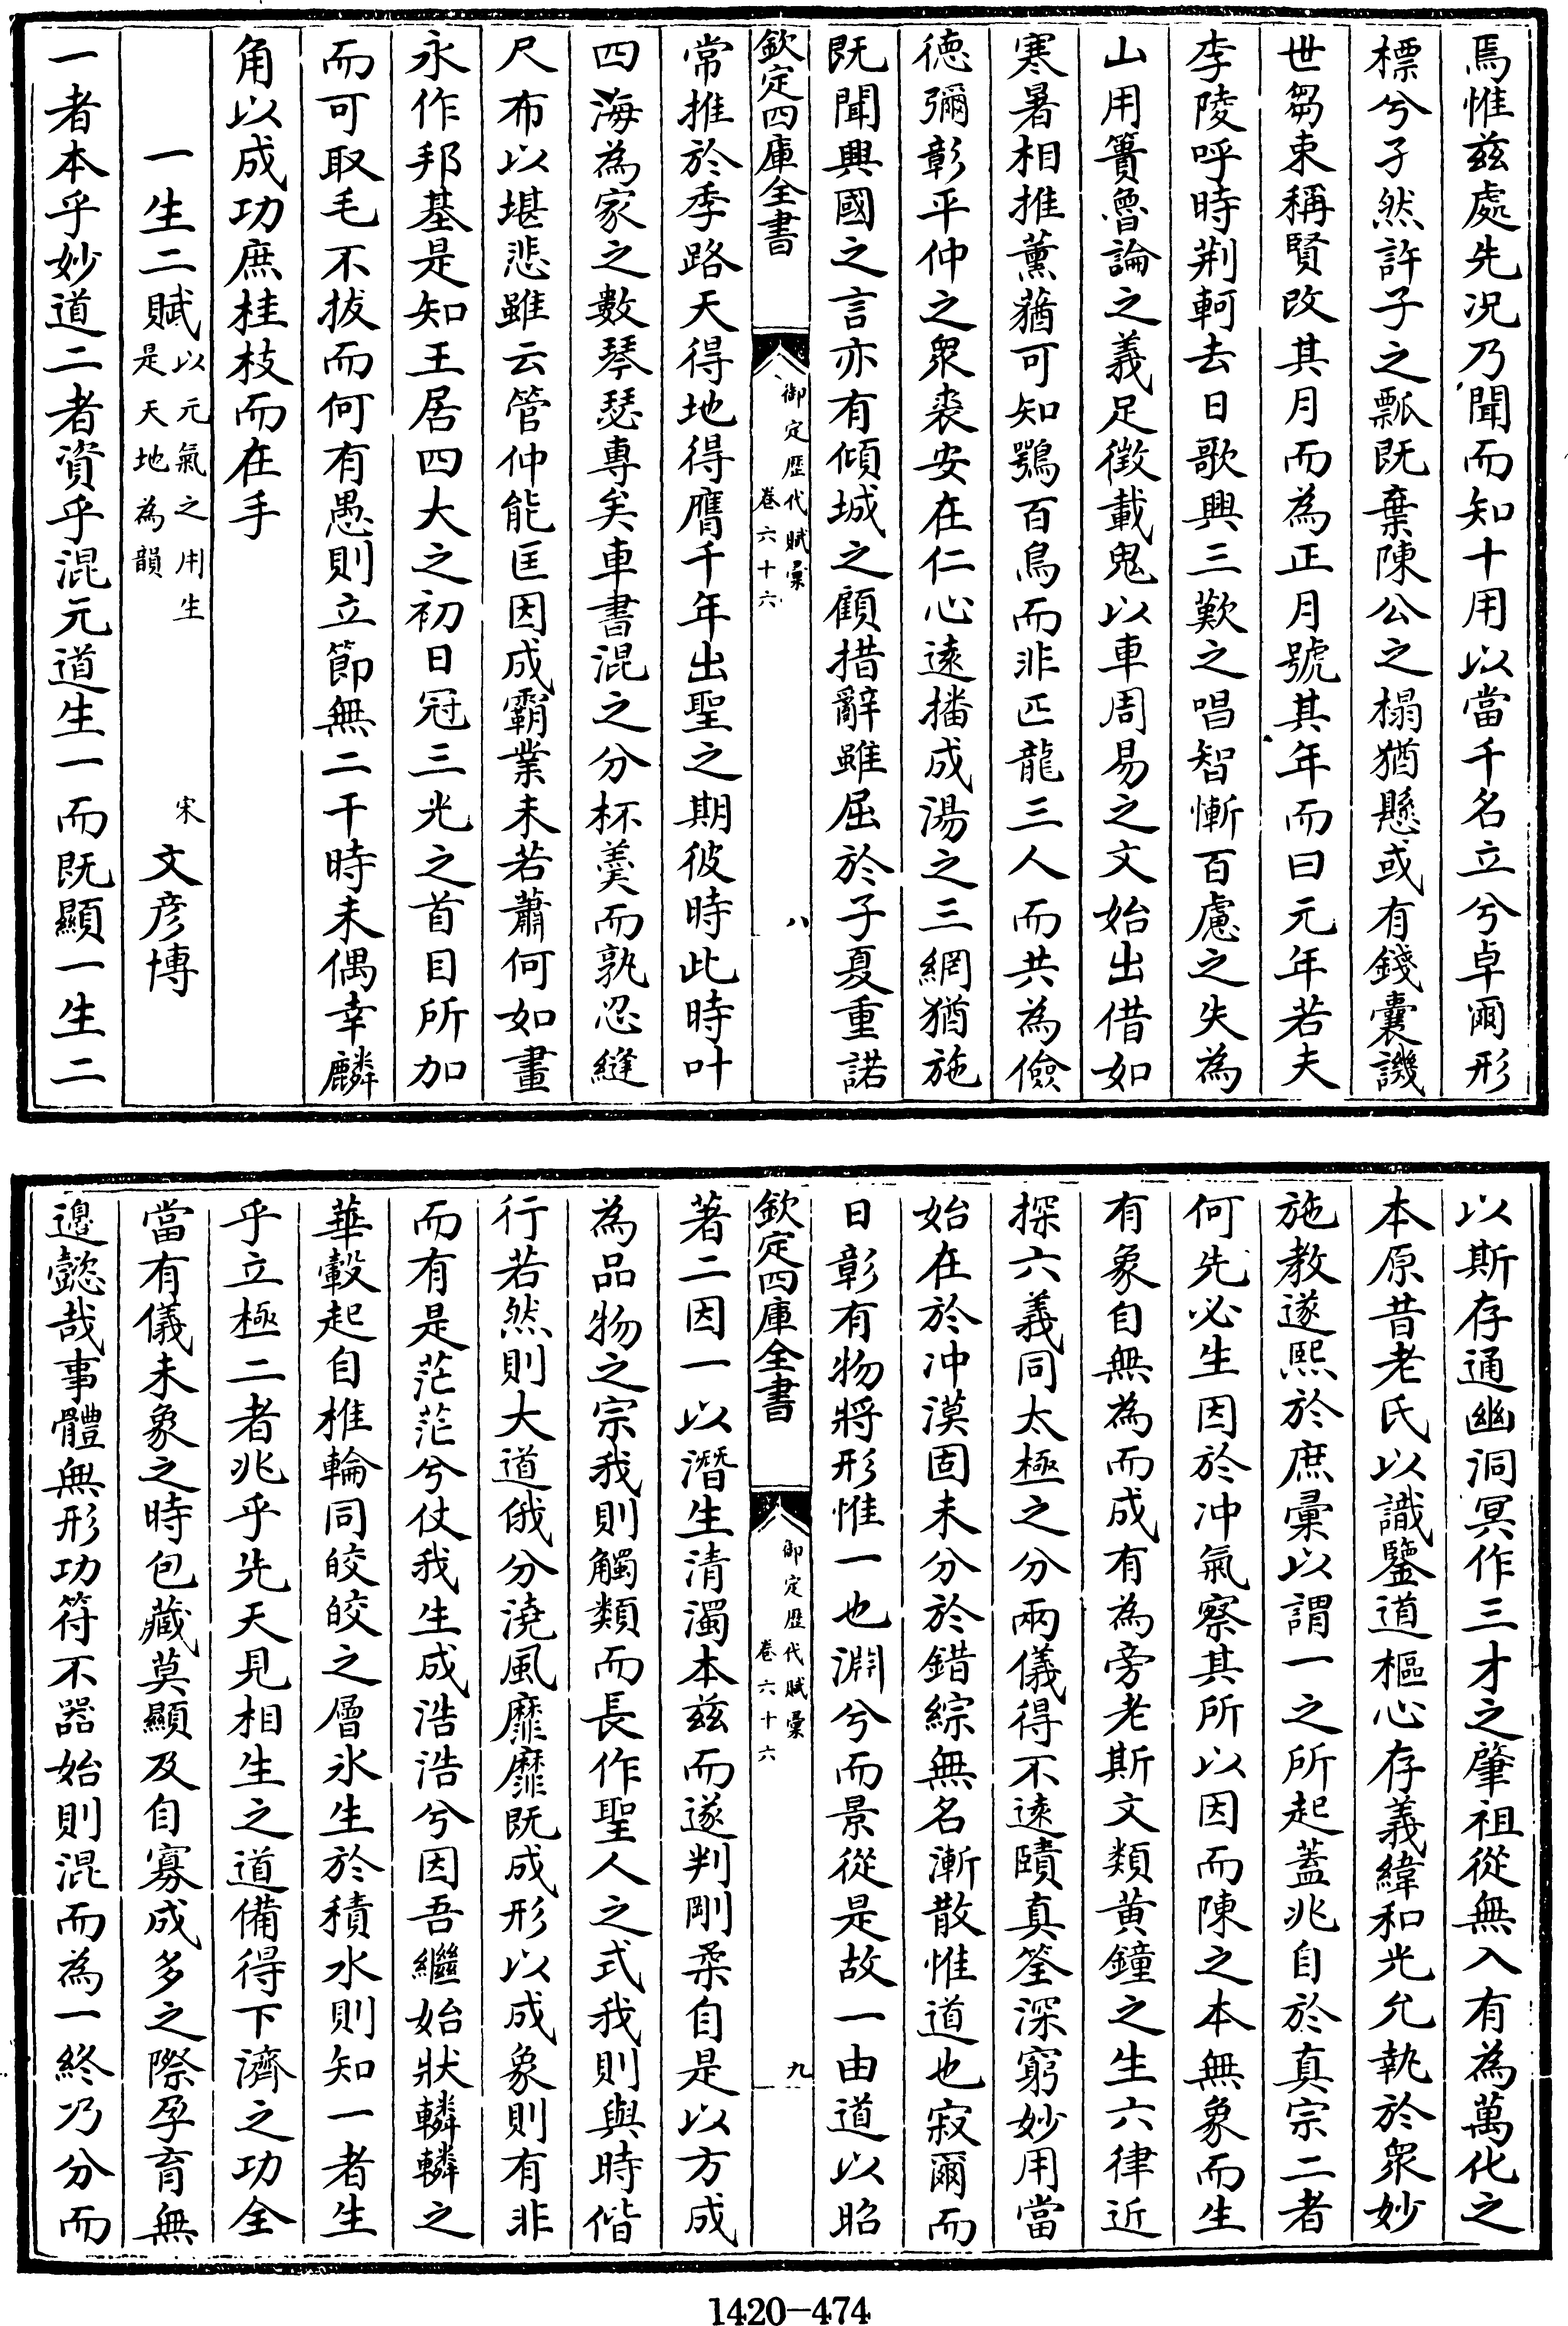 焉惟茲處先況乃聞而知十用以當千名立兮卓爾形
標兮孑然許子之瓢既棄陳公之榻猶懸或有錢囊譏
世芻束稱賢改其月而為正月號其年而曰元年若夫
李陵呼時荆軻去日歌興三歎之唱智慚百慮之失為
山用簣魯論之義足徵載鬼以車周易之文始出借如
寒暑相推薰蕕可知鶚百鳥而非匹龍三人而共為儉
德彌彰平仲之衆裘安在仁心遠播成湯之三網猶施
既聞興國之言亦有傾城之顧措辭雖屈於子夏重諾
欽定四庫全書
御定歴代賦彙
卷六十六
八
常推於季路天得地得膺千年出聖之期彼時此時叶
四海為家之數琴瑟專矣車書混之分杯羹而孰忍縫
尺布以堪悲雖云管仲能匡因成霸業未若蕭何如畫
永作邦基是知王居四大之初日冠三光之首目所加
而可取毛不拔而何有愚則立節無二干時未偶幸麟
角以成功庶桂枝而在手
一生二賦
以元氣之用生
是天地為韻
宋 文彦博
一者本乎妙道二者資乎混元道生一而既顯一生二
以斯存通幽洞冥作三才之肇祖從無入有為萬化之
本原昔老氏以識鑒道樞心存義緯和光允執於衆妙
施教遂熙於庶彙以謂一之所起蓋兆自於真宗二者
何先必生因於冲氣察其所以因而陳之本無象而生
有象自無為而成有為旁老斯文類黄鐘之生六律近
探六義同太極之分兩儀得不遠賾真筌深窮妙用當
始在於冲漠固未分於錯綜無名漸散惟道也寂爾而
日彰有物將形惟一也淵兮而景從是故一由道以昭
欽定四庫全書
御定歴代賦彙
卷六十六
九
著二因一以潛生清濁本茲而遂判剛柔自是以方成
為品物之宗我則觸類而長作聖人之式我則與時偕
行若然則大道俄分澆風靡靡既成形以成象則有非
而有是茫茫兮仗我生成浩浩兮因吾繼始狀轔轔之
華轂起自椎輪同皎皎之層氷生於積水則知一者生
乎立極二者兆乎先天見相生之道備得下濟之功全
當有儀未象之時包藏莫顯及自寡成多之際孕育無
邊懿哉事體無形功符不器始則混而為一終乃分而
1420-474